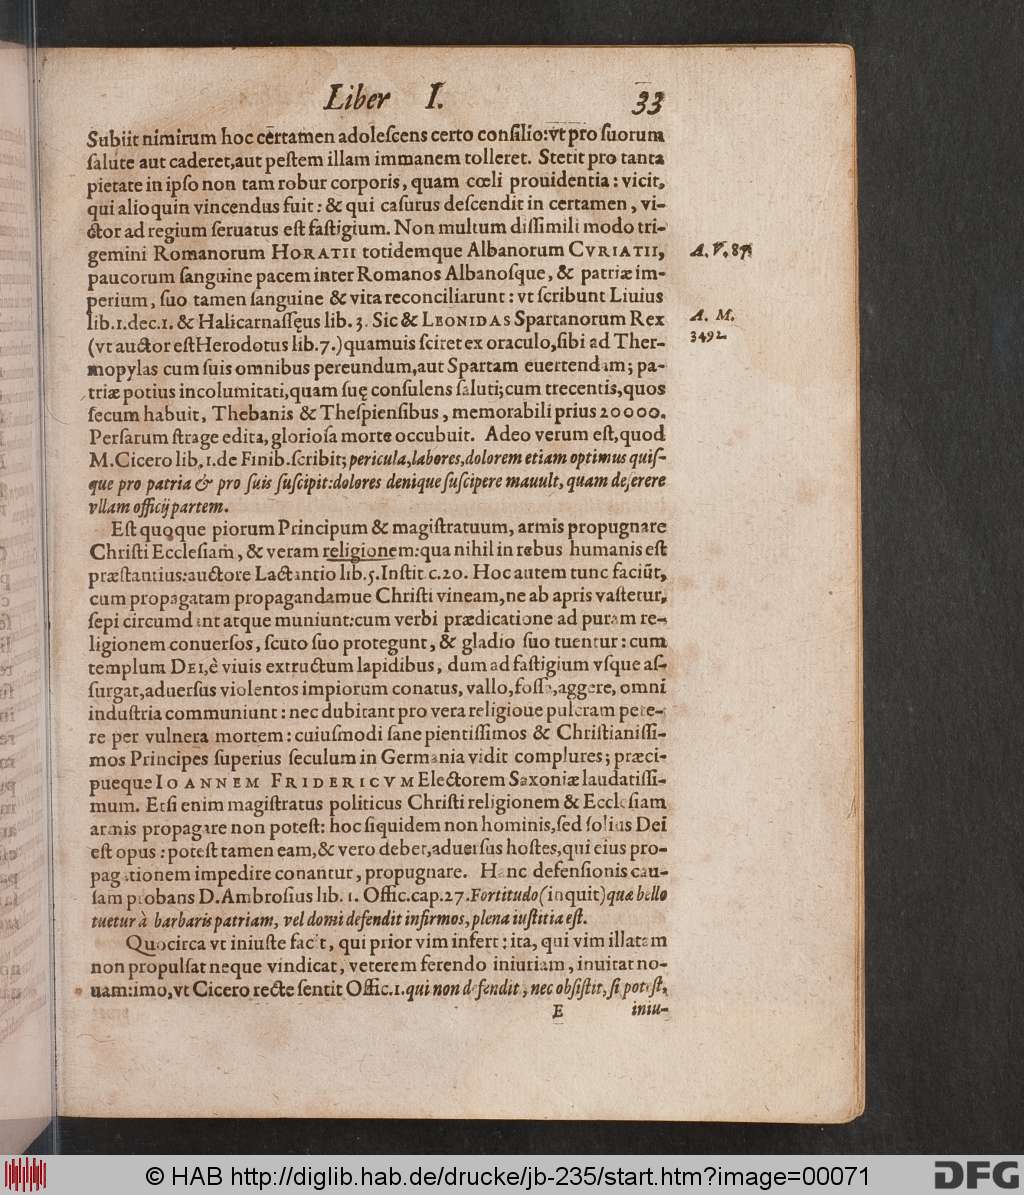 Liber I. 33
Subiit nimirum hoc certamen adolescens certo consilio: vt pro suorum
salute aut caderet, aut pestem illam immanem tolleret. Stetit pro tanta
pietate in ipso non tam robur corporis, quam cœli prouidentia: vicit,
qui alioquin vincendus fuit: & qui casurus descendit in certamen, vi-
ctor ad regium seruatus est fastigium. Non multum dissimili modo tri-
gemini Romanorum HORATII totidemque Albanorum CVRIATII,
A. V. 87
paucorum sanguine pacem inter Romanos Albanosque, & patriæ im-
perium, suo tamen sanguine & vita reconciliarunt: vt scribunt Liuius
lib. 1. dec. 1. & Halicarnassęus lib. 3. Sic & LEONIDAS Spartanorum Rex
A. M.
3492
(vt auctor est Herodotus lib. 7.) quamuis sciret ex oraculo, sibi ad Ther-
mopylas cum suis omnibus pereundum, aut Spartam euertendam; pa-
triæ potius incolumitati, quam suę consulens saluti; cum trecentis, quos
secum habuit, Thebanis & Thespiensibus, memorabili prius 20000.
Persarum strage edita, gloriosa morte occubuit. Adeo verum est, quod
M. Cicero lib, 1. de Finib. scribit; pericula, labores, dolorem etiam optimus quis-
que pro patria & pro suis suscipit: dolores denique suscipere mauult, quam deserere
vllam officij partem.
Est quoque piorum Principum & magistratuum, armis propugnare
Christi Ecclesiam, & veram religionem: qua nihil in rebus humanis est
præstantius: auctore Lactantio lib. 5. Instit c. 20. Hoc autem tunc faciūt,
cum propagatam propagandamue Christi vineam, ne ab apris vastetur,
sepi circumdant atque muniunt: cum verbi prædicatione ad puram re-
ligionem conuersos, scuto suo protegunt, & gladio suo tuentur: cum
templum DEI, è viuis extructum lapidibus, dum ad fastigium vsque as-
surgat, aduersus violentos impiorum conatus, vallo, fossa, aggere, omni
industria communiunt: nec dubitant pro vera religioue pulcram pete-
re per vulnera mortem: cuiusmodi sane pientissimos & Christianissi-
mos Principes superius seculum in Germania vidit complures; præci-
pueque IOANNEM FRIDERICVM Electorem Saxoniæ laudatissi-
mum. Etsi enim magistratus politicus Christi religionem & Ecclesiam
armis propagare non potest: hoc siquidem non hominis, sed solius Dei
est opus: potest tamen eam, & vero debet, aduersus hostes, qui eius pro-
pagationem impedire conantur, propugnare. Hanc defensionis cau-
sam probans D. Ambrosius lib. 1. Offic. cap. 27. Fortitudo (inquit) quæ bello
tuetur à barbaris patriam, vel domi defendit infirmos, plena iustitia est.
Quocirca vt iniuste facit, qui prior vim infert: ita, qui vim illatam
non propulsat neque vindicat, veterem ferendo iniuriam, inuitat no-
uam: imo, vt Cicero recte sentit Offic. 1. qui non defendit, nec obsistit, si potest,
E iniu-
© HAB http://diglib.hab.de/drucke/jb-235/start.htm?image=00071
DFG